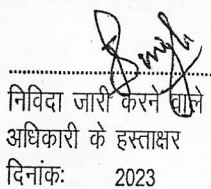 निविदा जारी करने वाले
अधिकारी के हस्ताक्षर
दिनांकः 2023